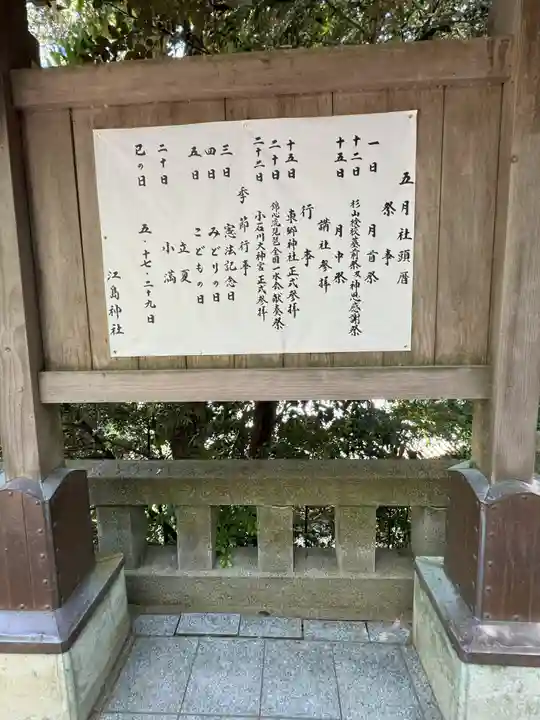 五月社頭暦
祭事
一日 月首祭
十二日 杉山検校墓前祭又神恩感謝祭
十五日 月中祭
講社参拝
行事
十五日 東郷神社正式参拝
二十日 錦心流琵琶全国一水会献奏祭
二十二日 小石川大神宮正式参拝
季節行事
三日 憲法記念日
四日 みどりの日
五日 こどもの日
立夏
二十日 小満
巳の日 五・十七・二十九日
江島神社